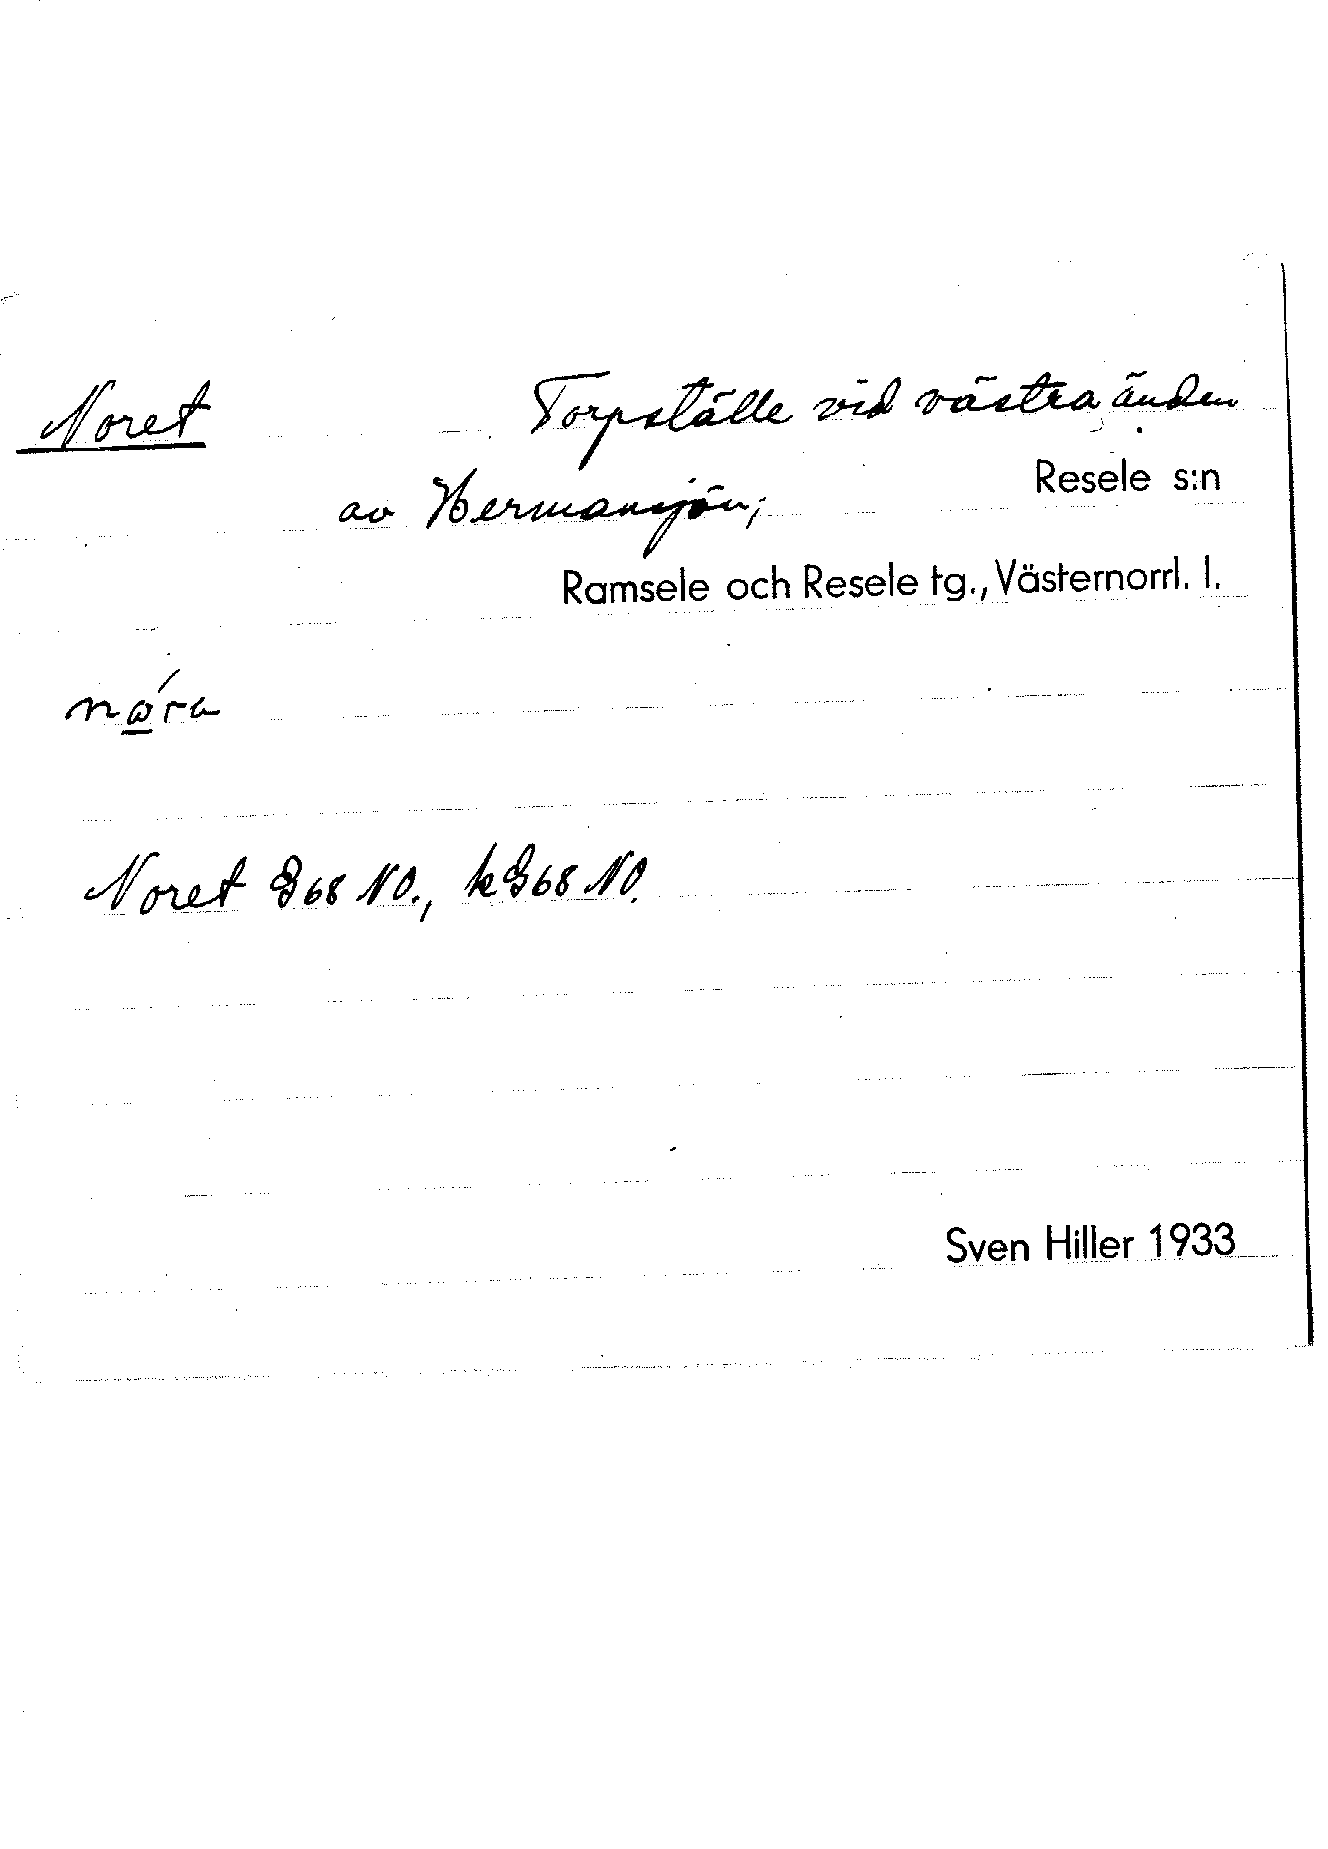 Noret Torpställe vid västra änden
av Hermansjön;
Resele s:n
Ramsele och Resele tg., Västernorrl. l.
Noret G68 NO., k G68 NO.
Sven Hiller 1933